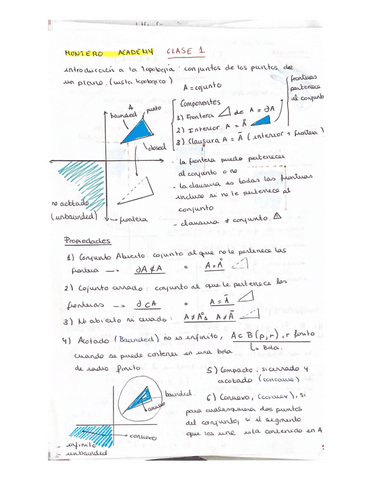 MONTERO ACADEMY CLASE 1
introducción a la Topología: conjuntos de los puntos de
un plano. (vista topológica)
A = conjunto
A
bounded
punto
closed
no acotado
(unbounded)
frontera
Componentes
1) Frontera de A = ∂A
2) Interior A = Å
3) Clausura A = Ā (interior + frontera)
fronteras
pertenece
al conjunto
- la frontera puede pertenecer
al conjunto o no
- la clausura es todas las fronteras
incluso si no le pertenece al
conjunto
- clausura ≠ conjunto
Propiedades
1) Conjunto Abierto: cojunto al que no le pertenece las
frontera → ∂A ⊄ A = A = Å
2) Cojunto cerrado: conjunto al que le pertenece las
fronteras → ∂ ⊂ A = A = Ā
3) No abierto ni cerrado: A ≠ Å A ≠ Ā
4) Acotado (Bounded) no es infinito, A ⊂ B(p,r), r finito
Bola.
cuando se puede contener en una bola
de radio finito.
bounded
convexo
convexo
infinito
unbounded
5) Compacto, si cerrado y
acotado
6) Convexo, si
para cualesquiera dos puntos
del conjunto, si el segmento
que los une esta contenido en A